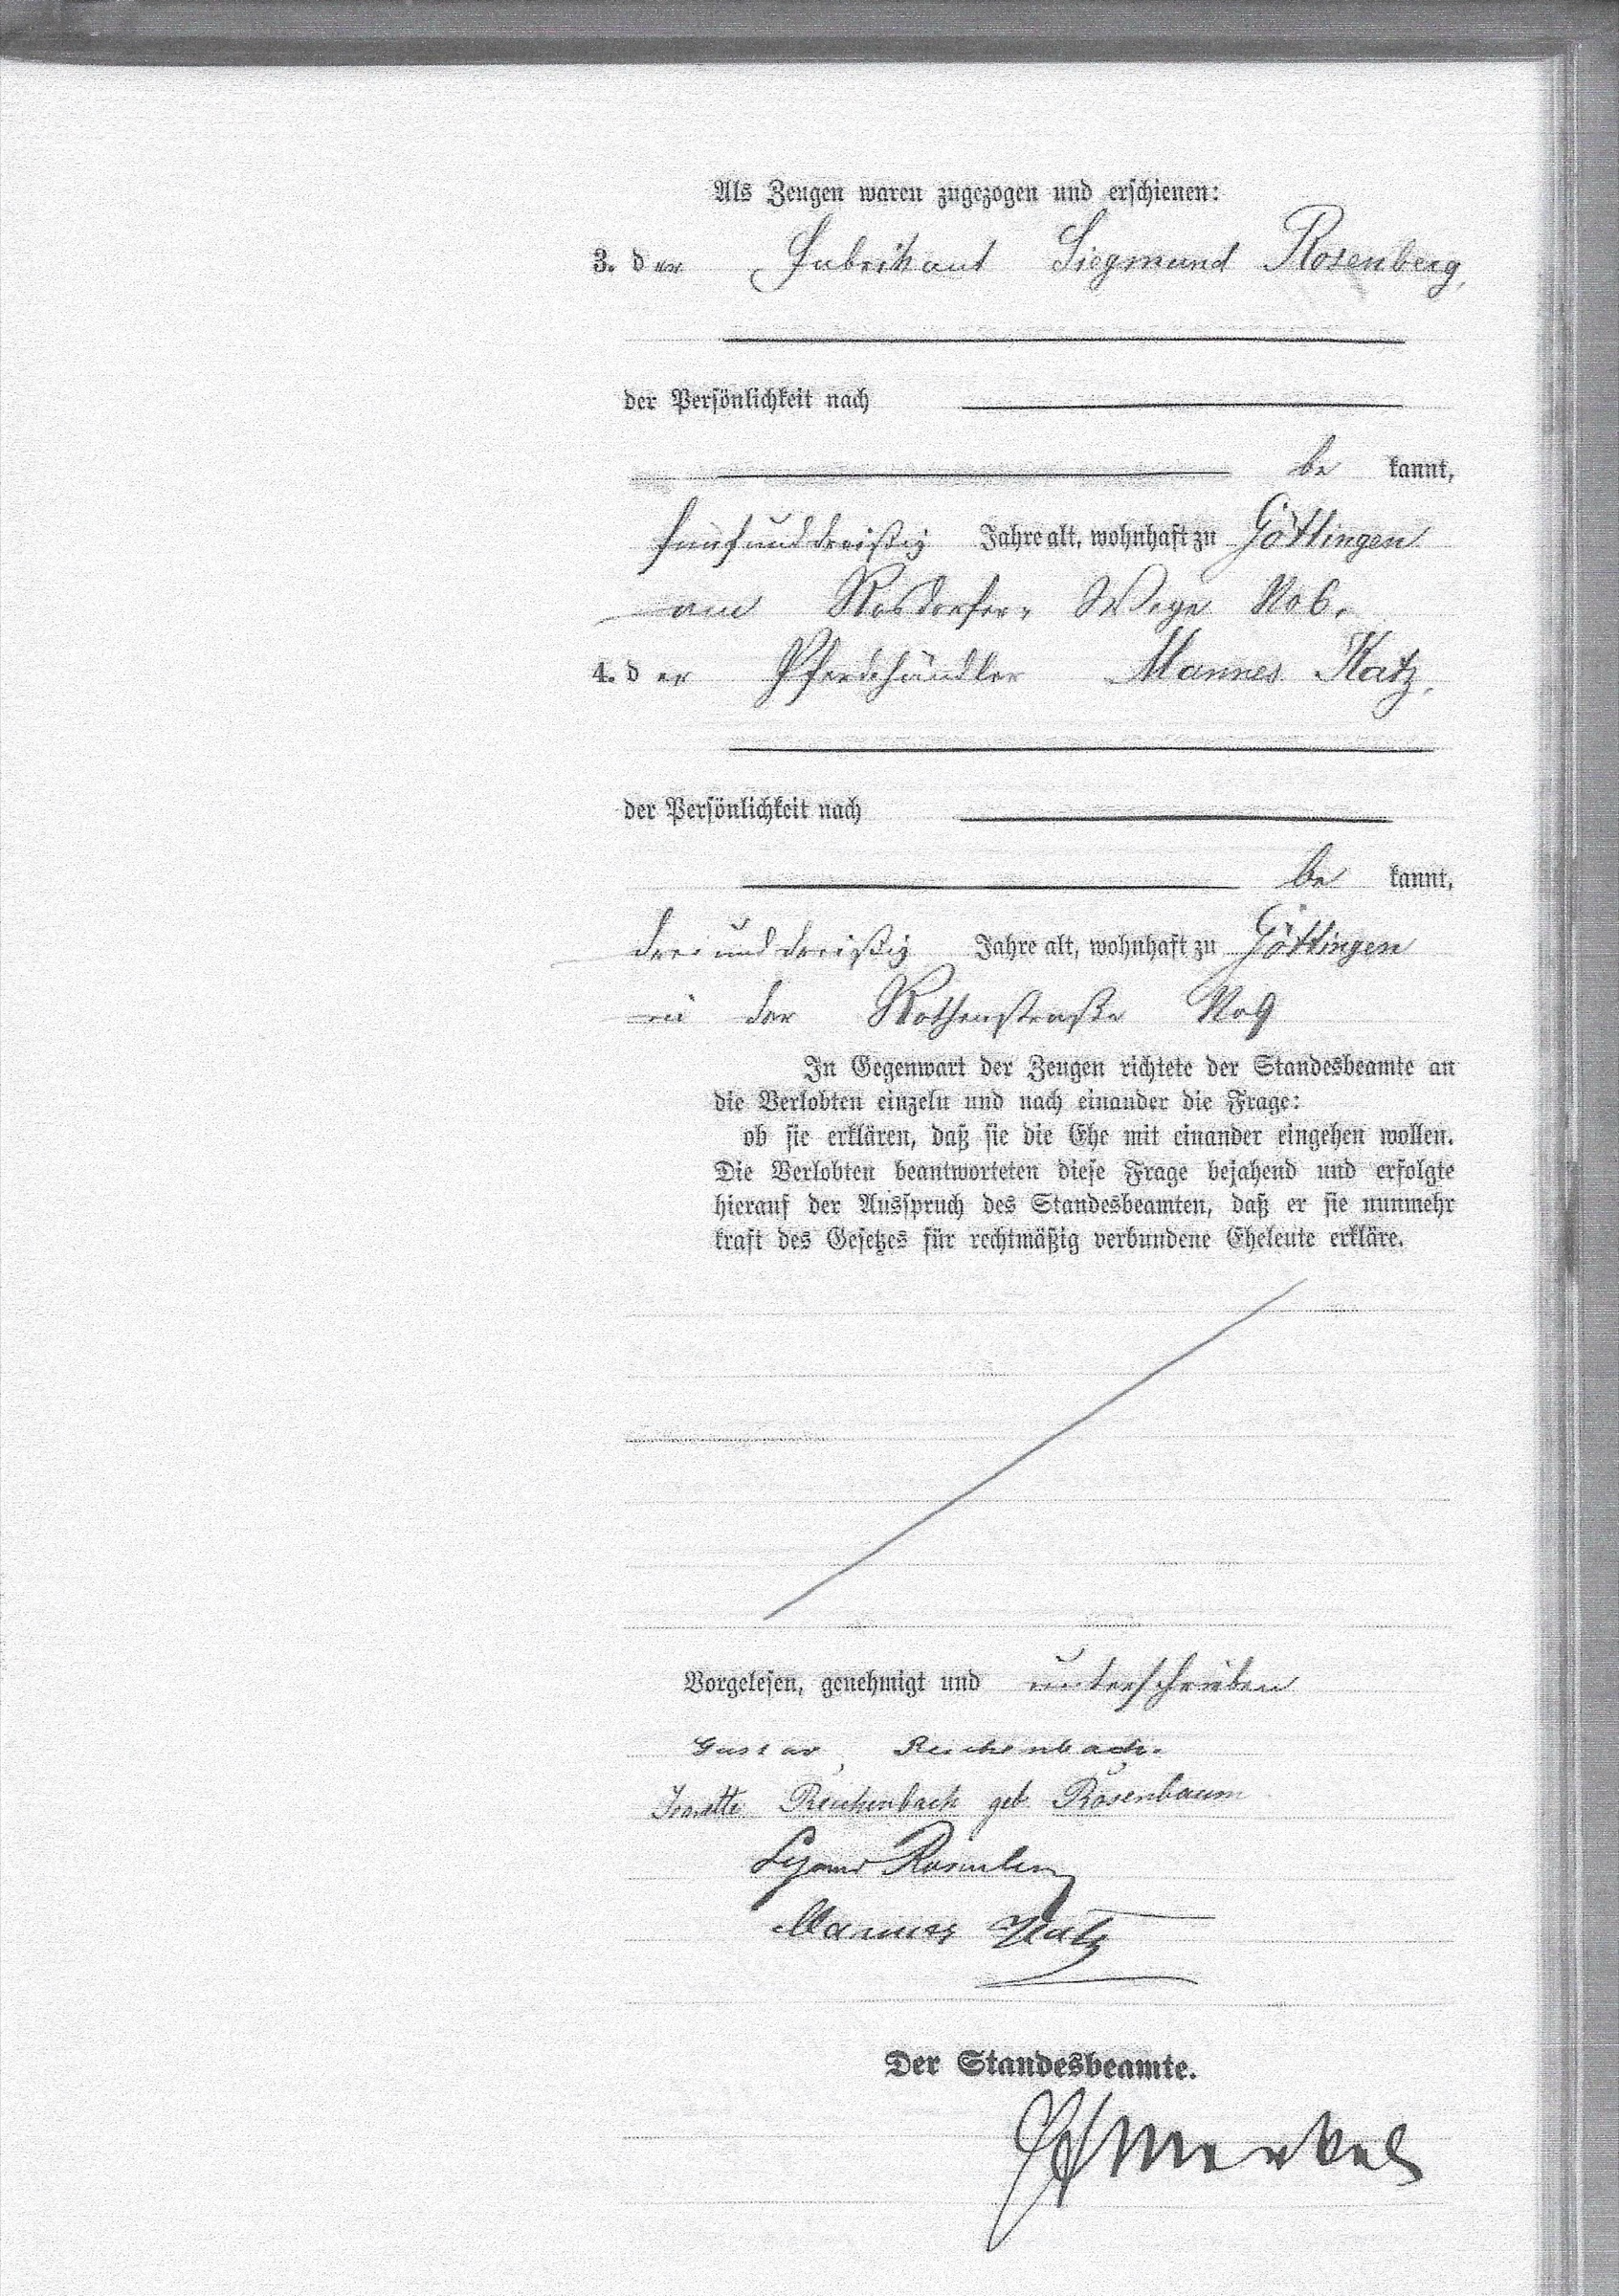 Als Zeugen waren zugezogen und erschienen:
3. der Fabrikant Siegmund Rosenberg,
der Persönlichkeit nach
be kannt,
fünfunddreißig Jahre alt, wohnhaft zu Göttingen
am Rosdorfer Wege No 6.
4. der Pferdehändler Mannes Katz,
der Persönlichkeit nach
be kannt,
dreiunddreißig Jahre alt, wohnhaft zu Göttingen
in der Rothenstraße No 9
In Gegenwart der Zeugen richtete der Standesbeamte an
die Verlobten einzeln und nach einander die Frage:
ob sie erklären, daß sie die Ehe mit einander eingehen wollen.
Die Verlobten beantworteten diese Frage bejahend und erfolgte
hierauf der Ausspruch des Standesbeamten, daß er sie nunmehr
kraft des Gesetzes für rechtmäßig verbundene Eheleute erkläre.
Vorgelesen, genehmigt und unterschrieben
Gustav Reichenbach.
Reichenbach geb. Rosenbaum
Rosenberg
Mannes Katz
Der Standesbeamte.
Merkel